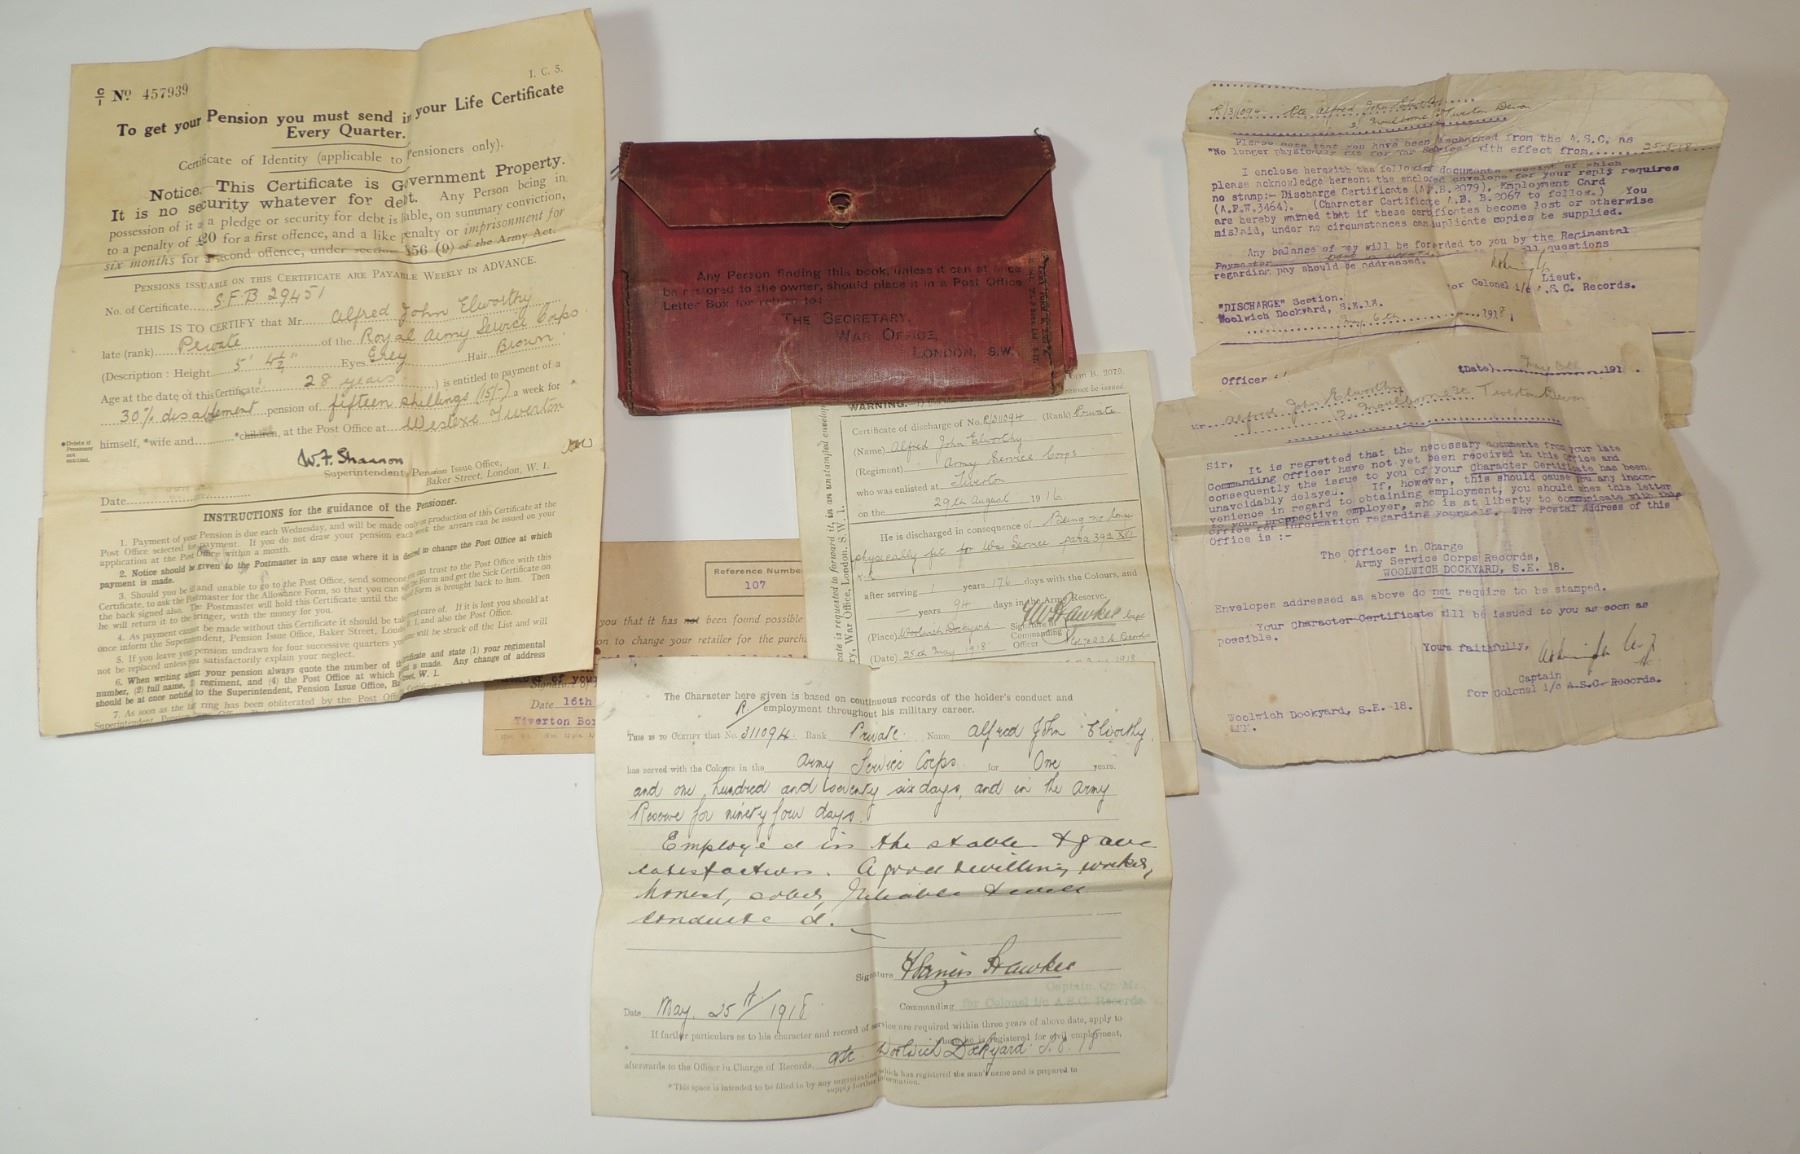 I. C. 5.
C/I No 457939
To get your Pension you must send in your Life Certificate
Every Quarter.
Certificate of Identity (applicable to Pensioners only).
Notice. This Certificate is Government Property.
It is no security whatever for debt. Any Person being in
possession of it as a pledge or security for debt is liable, on summary conviction,
to a penalty of £20 for a first offence, and a like penalty or imprisonment for
six months for a second offence, under section 156 (9) of the Army Act.
PENSIONS ISSUABLE ON THIS CERTIFICATE ARE PAYABLE WEEKLY IN ADVANCE.
No. of Certificate S.F.B 29451
THIS IS TO CERTIFY that Mr Alfred John Elworthy
late (rank) Private of the Royal Army Service Corps
(Description: Height 5' 4½" Eyes Grey Hair Brown
Age at the date of this Certificate 28 years) is entitled to payment of a
30% disablement pension of fifteen shillings (15/-) a week for
himself, *wife and *children, at the Post Office at Westexe Tiverton
W.F. Shannon
Superintendent, Pension Issue Office,
Baker Street, London, W. 1.
Date
INSTRUCTIONS for the guidance of the Pensioner.
1. Payment of your Pension is due each Wednesday, and will be made only on production of this Certificate at the
Post Office selected for payment. If you do not draw your pension each week the arrears can be issued on your
application at the Post Office within a month.
2. Notice should be given to the Postmaster in any case where it is desired to change the Post Office at which
payment is made.
3. Should you be ill and unable to go to the Post Office, send someone you can trust to the Post Office with this
Certificate, to ask the Postmaster for the Allowance Form, so that you can sign the Form and get the Sick Certificate on
the back signed also. The Postmaster will hold this Certificate until the Form is brought back to him. Then
he will return it to the bringer, with the money for you.
4. As payment cannot be made without this Certificate it should be taken great care of. If it is lost you should at
once inform the Superintendent, Pension Issue Office, Baker Street, London, W. 1, and also the Post Office.
5. If you leave your pension undrawn for four successive quarters your name will be struck off the List and will
not be replaced unless you satisfactorily explain your neglect.
6. When writing about your pension always quote the number of this Certificate and state (1) your regimental
number, (2) full name, (3) regiment, and (4) the Post Office at which payment is made. Any change of address
should be at once notified to the Superintendent, Pension Issue Office, Baker Street, W. 1.
7. As soon as the ring has been obliterated by the Post Office
Any Person finding this book, unless it can at once
be restored to the owner, should place it in a Post Office
Letter Box for return to:
THE SECRETARY,
WAR OFFICE,
LONDON, S.W.
WARNING.
Certificate of discharge of No. R/311094 (Rank) Private
(Name) Alfred John Elworthy
(Regiment) Army Service Corps
who was enlisted at Tiverton
on the 29th August 1916.
He is discharged in consequence of Being no longer
physically fit for War Service para 392 XVI
K.R.
after serving 1 years 176 days with the Colours, and
— years 94 days in the Army Reserve.
(Place) Woolwich Dockyard Signature of Commanding Officer
(Date) 25th May 1918
Reference Number
107
you that it has not been found possible
on to change your retailer for the purch
Date 16th
Tiverton Bor
The Character here given is based on continuous records of the holder's conduct and
employment throughout his military career.
THIS IS TO CERTIFY that No. R/311094 Rank Private Name Alfred John Elworthy
has served with the Colours in the Army Service Corps for One years.
and one hundred and seventy six days, and in the Army
Reserve for ninety four days.
Employed in the stable & gave
satisfaction. A good & willing worker,
honest, sober, reliable & well
conducted.
Signature Francis Hawker
Captain, Qr. Mr.,
Commanding for Colonel i/c A.S.C. Records.
Date May. 25th/1918
If further particulars as to his character and record of service are required within three years of above date, apply to
afterwards to the Officer in Charge of Records, ASC Woolwich Dockyard S.E. 18
*This space is intended to be filled in by any organization which has registered the man's name and is prepared to
supply further information.
R/311094 Pte Alfred John Elworthy
Tiverton Devon
Please note that you have been discharged from the A.S.C. as
"No longer physically fit for War Service" with effect from 25-5-18
I enclose herewith the following documents receipt of which
please acknowledge hereon: the enclosed envelope for your reply requires
no stamp:- Discharge Certificate (A.F.B.2079), Employment Card
(A.F.W.3464). (Character Certificate A.F. B.2067 to follow.) You
are hereby warned that if these certificates become lost or otherwise
mislaid, under no circumstances can duplicate copies be supplied.
Any balance of pay will be forwarded to you by the Regimental
Paymaster questions
regarding pay should be addressed.
Lieut.
for Colonel i/c A.S.C. Records.
"DISCHARGE" Section.
Woolwich Dockyard, S.E.18.
1918
Officer
(Date) 191
Mr. Alfred John Elworthy
Tiverton Devon
Sir,
It is regretted that the necessary documents from your late
Commanding Officer have not yet been received in this Office and
consequently the issue to you of your Character Certificate has been
unavoidably delayed. If, however, this should cause you any incon-
venience in regard to obtaining employment, you should show this letter
to your prospective employer, who is at liberty to communicate with this
office for information regarding yourself. The Postal Address of this
Office is :-
The Officer in Charge
Army Service Corps Records,
WOOLWICH DOCKYARD, S.E. 18.
Envelopes addressed as above do not require to be stamped.
Your Character Certificate will be issued to you as soon as
possible.
Yours faithfully,
Captain
for Colonel i/c A.S.C. Records.
Woolwich Dockyard, S.E. 18.